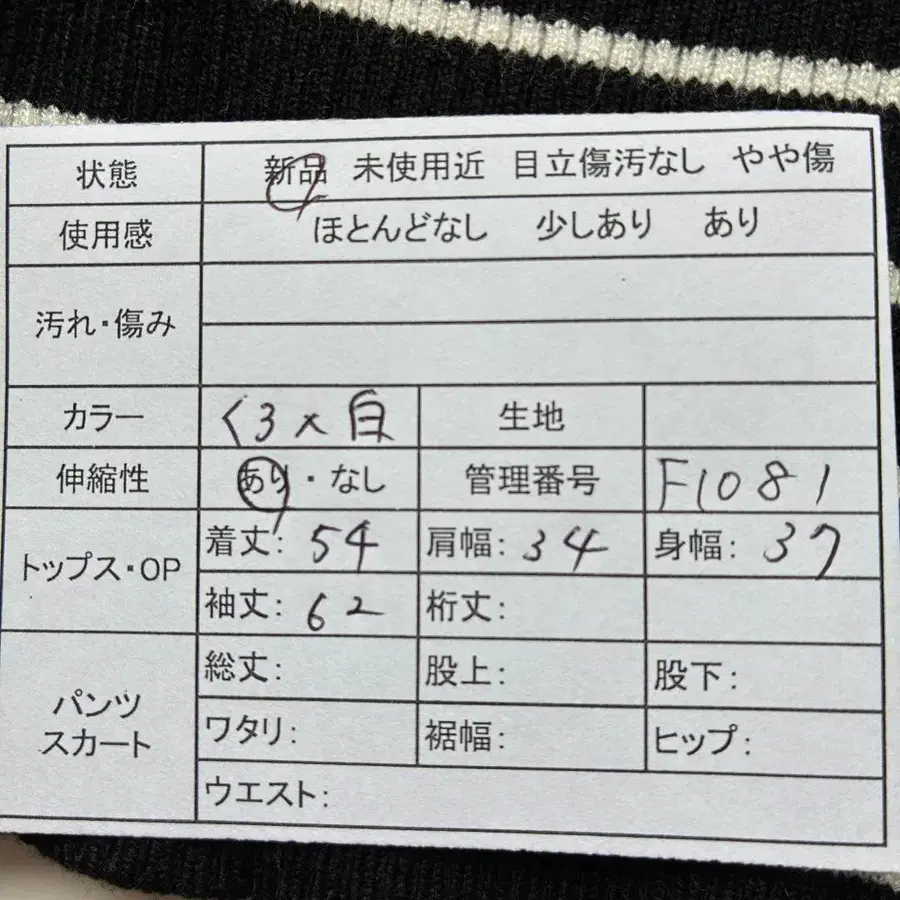 状態 新品 未使用近 目立傷汚なし やや傷
使用感 ほとんどなし 少しあり あり
汚れ・傷み
カラー くろ×白 生地
伸縮性 あり・なし 管理番号 F1081
トップス・OP 着丈: 54 肩幅: 34 身幅: 37
袖丈: 62 裄丈:
パンツ スカート 総丈: 股上: 股下:
ワタリ: 裾幅: ヒップ:
ウエスト: